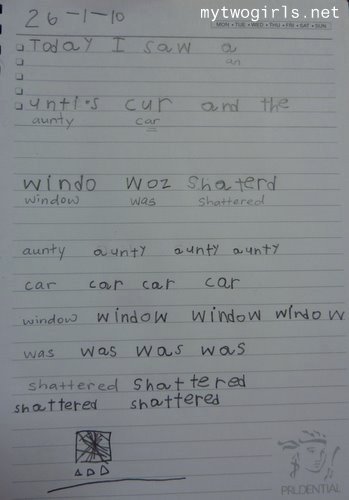 mytwogirls.net
26-1-10
MON • TUE • WED • THU • FRI • SAT • SUN
Today I saw a
an
unti's cur and the
aunty car
windo woz shaterd
window was shattered
aunty aunty aunty aunty
car car car car
window window window window
was was was was
shattered shattered
shattered shattered
PRUDENTIAL